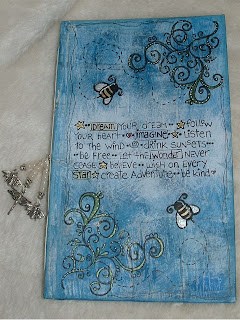 dream your dream follow
your heart imagine listen
to the wind drink sunsets
be free let the wonder never
cease believe wish on every
star create adventure be kind